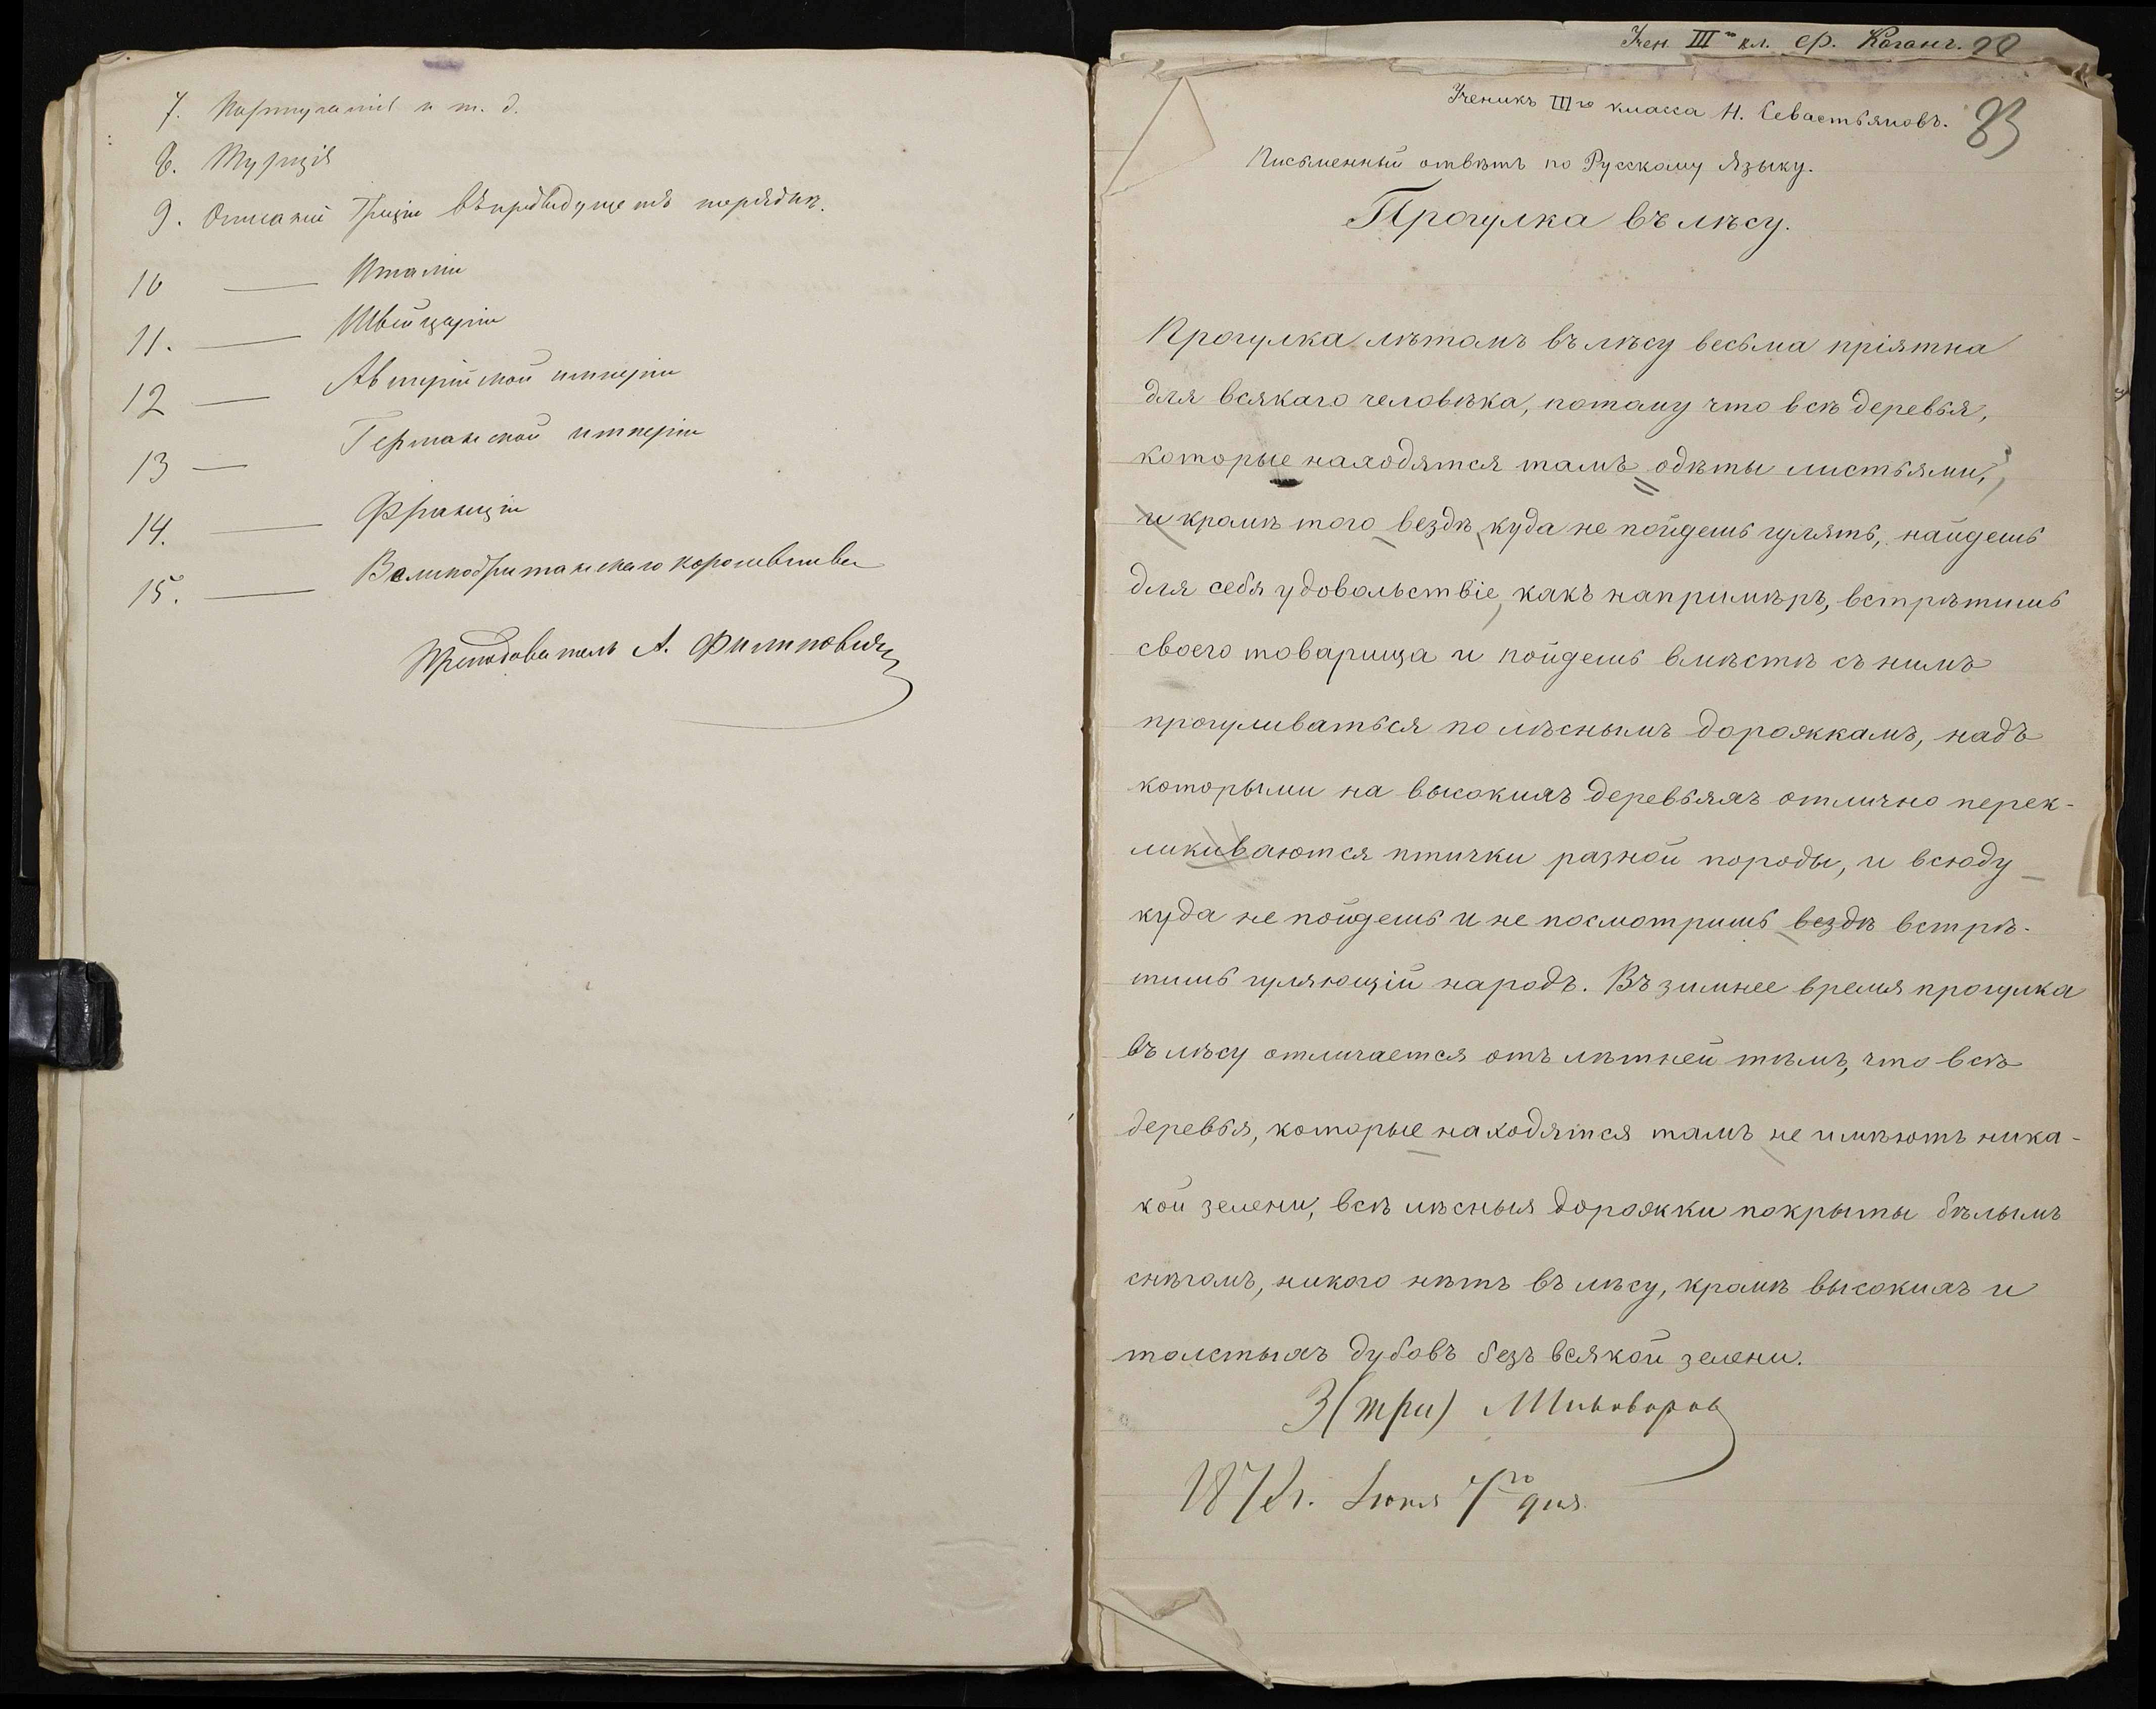 7. Португаліи и т. д.
8. Турція
9. Описаніе Греціи въ предъидущемъ порядкѣ.
10 — Италіи
11. — Швейцаріи
12 — Австрійской имперіи
13 — Германской имперіи
14. — Франціи
15. — Великобританскаго королевства
Преподаватель А. Филиповичъ
Учен. III го кл. Ср. Коганъ.
Ученикъ III го класса Н. Севастьяновъ.
83
Письменный отвѣтъ по Русскому Языку.
Прогулка въ лѣсу.
Прогулка лѣтомъ въ лѣсу весьма пріятна
для всякаго человѣка, потому что всѣ деревья,
которые находятся тамъ одѣты листьями,
и кромѣ того вездѣ, куда не пойдешь гулять, найдешь
для себя удовольствіе, какъ напримѣръ, встрѣтишь
своего товарища и пойдешь вмѣстѣ съ нимъ
прогуливаться по лѣснымъ дорожкамъ, надъ
которыми на высокихъ деревьяхъ отлично перек-
ликиваются птички разной породы, и всюду
куда не пойдешь и не посмотришь вездѣ встрѣ-
тишь гуляющій народъ. Въ зимнее время прогулка
въ лѣсу отличается отъ лѣтней тѣмъ, что всѣ
деревья, которые находятся тамъ не имѣютъ ника-
кой зелени, всѣ лѣсныя дорожки покрыты бѣлымъ
снѣгомъ, никого нѣтъ въ лѣсу, кромѣ высокихъ и
толстыхъ дубовъ безъ всякой зелени.
3 (три)
187 г. Іюня 7го дня.